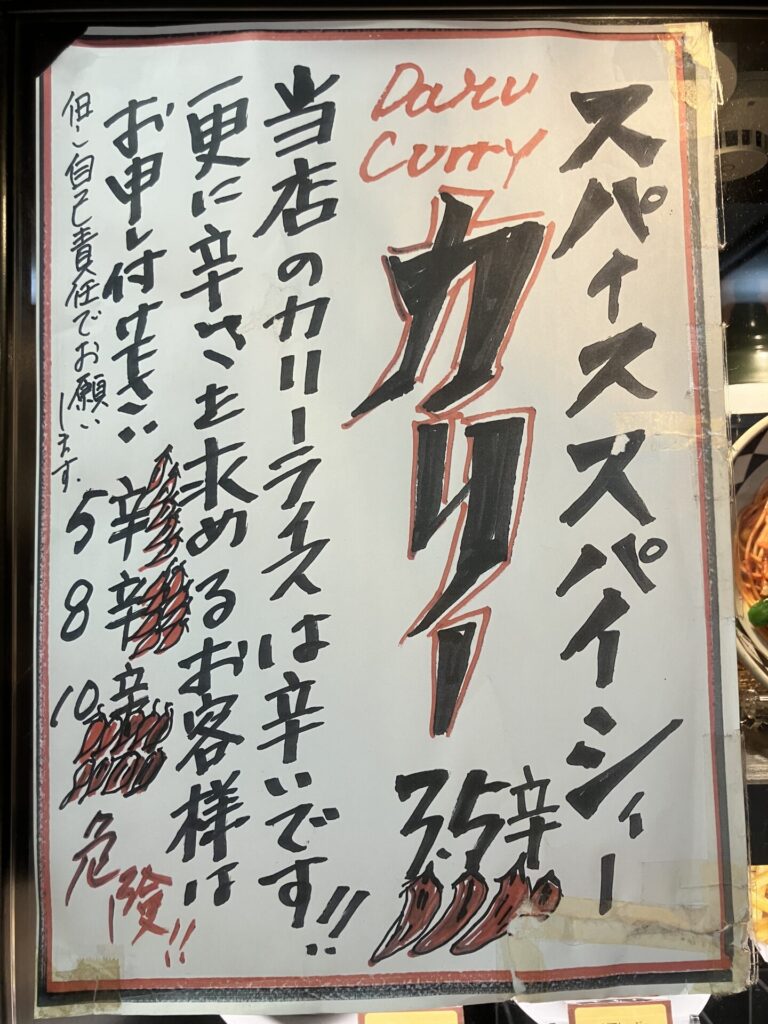 スパイススパイシィー
Daru
Curry
カリー
3.5辛
当店のカリーライスは辛いです!!
更に辛さを求めるお客様は
お申し付け下さい
但し自己責任でお願いします.
5辛
8辛
10辛
危険!!